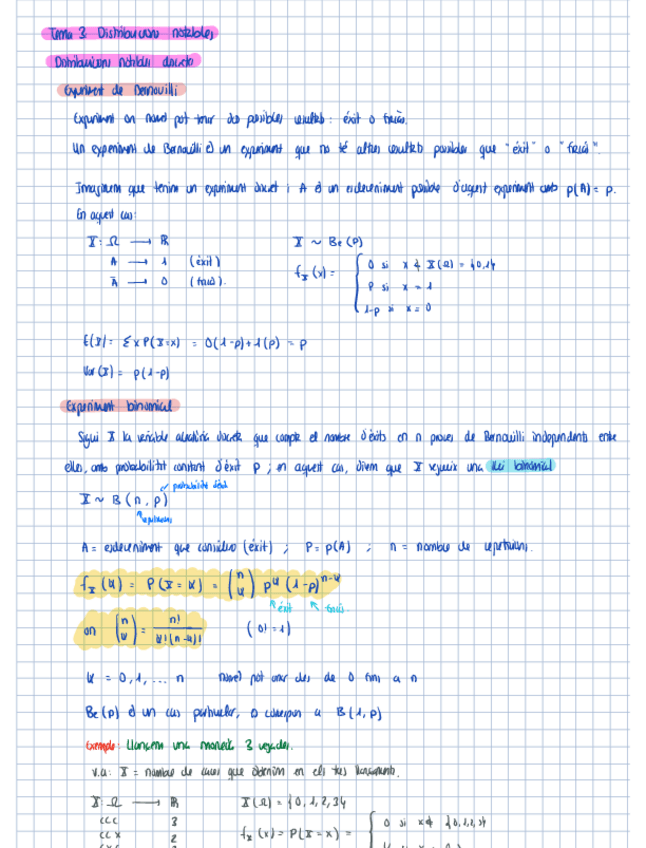 Tema 3: Distribucions notables
Distribucions notables discretes
Experiment de Bernouilli
Experiment on només pot tenir dos possibles resultats: èxit o fracàs.
Un experiment de Bernouilli és un experiment que no té altres resultats possibles que "èxit" o "fracàs".
Imaginem que tenim un experiment discret i A és un esdeveniment possible d'aquest experiment amb p(A) = p.
En aquest cas:
X: Ω → ℝ X ~ Be(p)
A → 1 (èxit)
Ā → 0 (fracàs).
f_X(x) = { 0 si x ∉ X(Ω) = {0,1}
p si x = 1
1-p si x = 0
E(X) = Σ x P(X=x) = 0(1-p) + 1(p) = p
Var(X) = p(1-p)
Experiment binomial
Sigui X la variable aleatòria discreta que compta el nombre d'èxits en n proves de Bernouilli independents entre
elles, amb probabilitat constant d'èxit p; en aquest cas, diem que X segueix una llei binomial
probabilitat d'èxit
X ~ B(n, p)
repeticions
A = esdeveniment que considero (èxit) ; P = p(A) ; n = nombre de repeticions.
f_X(k) = P(X = k) = (n k) p^k (1-p)^{n-k}
èxit fracàs
on (n k) = n! / k!(n-k)! (0! = 1)
k = 0, 1, ... n només pot anar des de 0 fins a n
Be(p) és un cas particular, correspon a B(1, p)
Exemple: Llancem una moneda 3 vegades.
v.a: X = nombre de cares que obtenim en els tres llançaments.
X: Ω → ℝ X(Ω) = {0, 1, 2, 3}
CCC 3
CCX 2
f_X(x) = P(X = x) = { 0 si x ∉ {0,1,2,3}